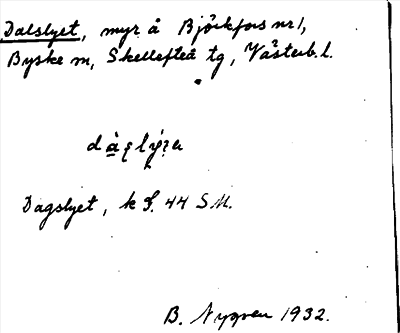 Dalslyet, myr å Björkfors nr 1,
Byske sn, Skellefteå tg, Västerb. l.
Dagslyet, k S. 44 S M.
B. Nygren 1932.